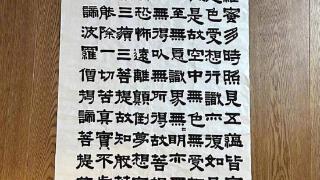 羅蜜多時照見五蘊皆
色受想行識亦復如
是故空中無色無受
至無意識界無無明亦
無得以無所得故菩
恐怖遠離顛倒夢想
三藐三菩提故知般
能除一切苦真實
諦波羅僧揭諦菩提